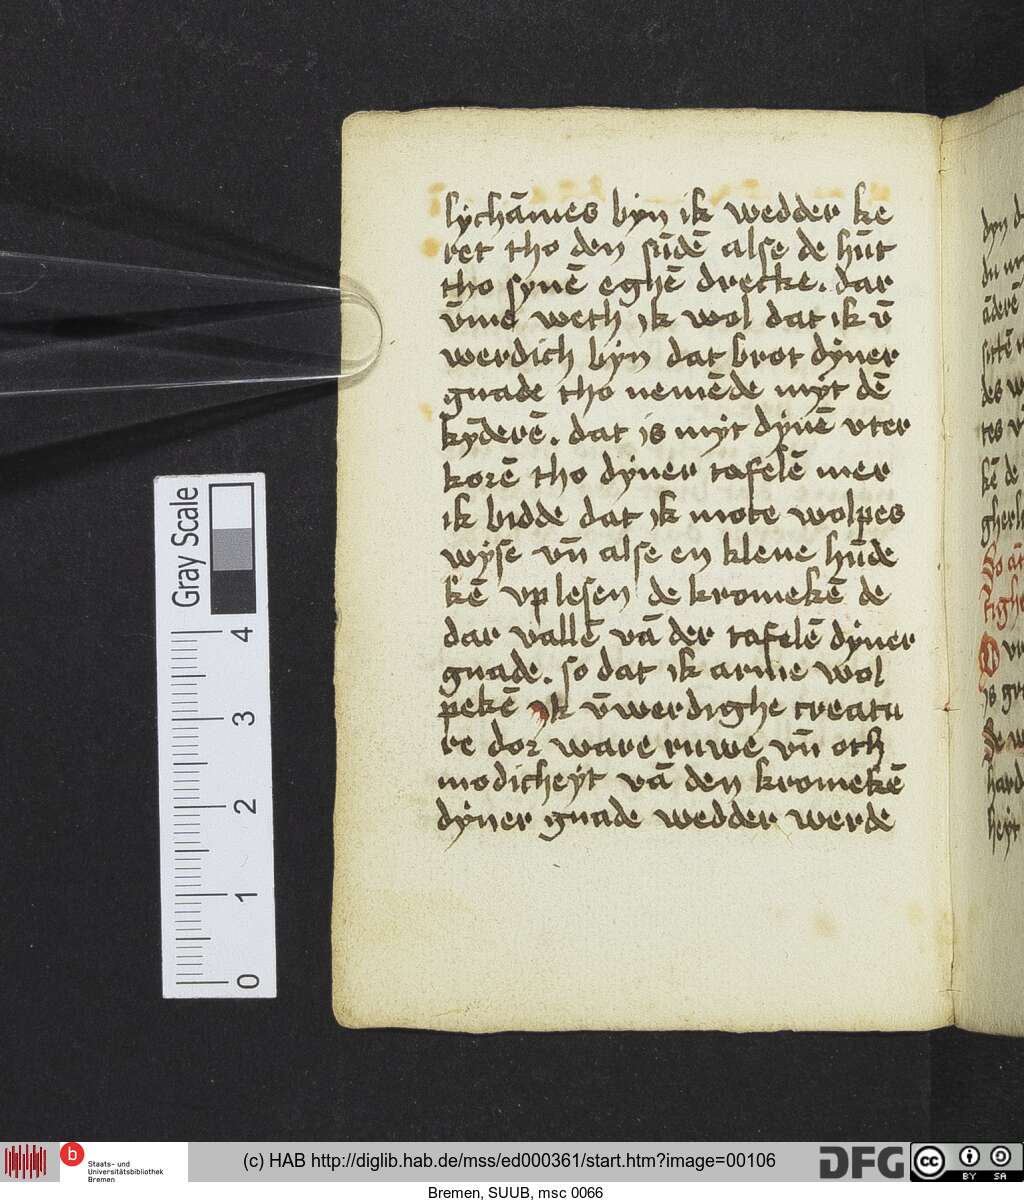 lychāmes byn ik wedder ke
ret tho den sūdē alse de hūt
tho synē eghē drecke. dar
v̄me weth ik wol dat ik v̄
werdich byn dat brot dyner
gnade tho nemēde myt dē
kȳderē. dat is myt dynē vter
korē tho dyner tafelē mer
ik bidde dat ik mote wolpes
wyse vn̄ alse en klene hūde
kē vp lesen de kromekē de
dar vallē vā der tafelē dyner
gnade. so dat ik arme wol
pekē ik v̄werdighe creatu
re dor ware ruwe vn̄ oth
modicheyt vā den kromekē
dyner gnade wedder werde
dyn d
āderē
sittē
des w
tes v
kē de
gherl
So
tighe
is gn
de w
hard
heyt
Gray Scale
4
3
2
1
0
b Staats- und
Universitätsbibliothek
Bremen
(c) HAB http://diglib.hab.de/mss/ed000361/start.htm?image=00106
DFG
cc BY SA
Bremen, SUUB, msc 0066